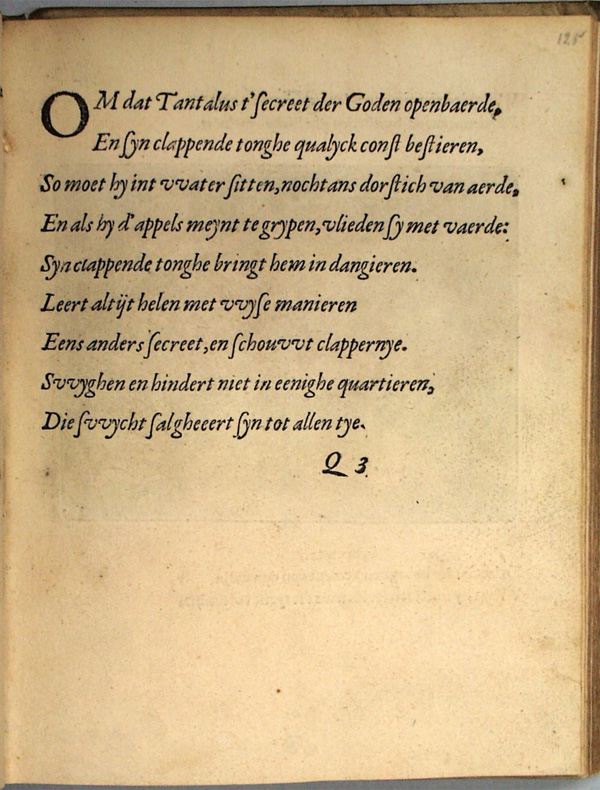 125
OM dat Tantalus t'ſecreet der Goden openbaerde,
En ſyn clappende tonghe qualyck conſt beſtieren,
So moet hy int vvater ſitten, nochtans dorſtich van aerde,
En als hy d'appels meynt te grypen, vlieden ſy met vaerde:
Syn clappende tonghe bringt hem in dangieren.
Leert altijt helen met vvyſe manieren
Eens anders ſecreet, en ſchouvvt clappernye.
Svvyghen en hindert niet in eenighe quartieren,
Die ſvvycht ſal gheeert ſyn tot allen tye.
Q 3